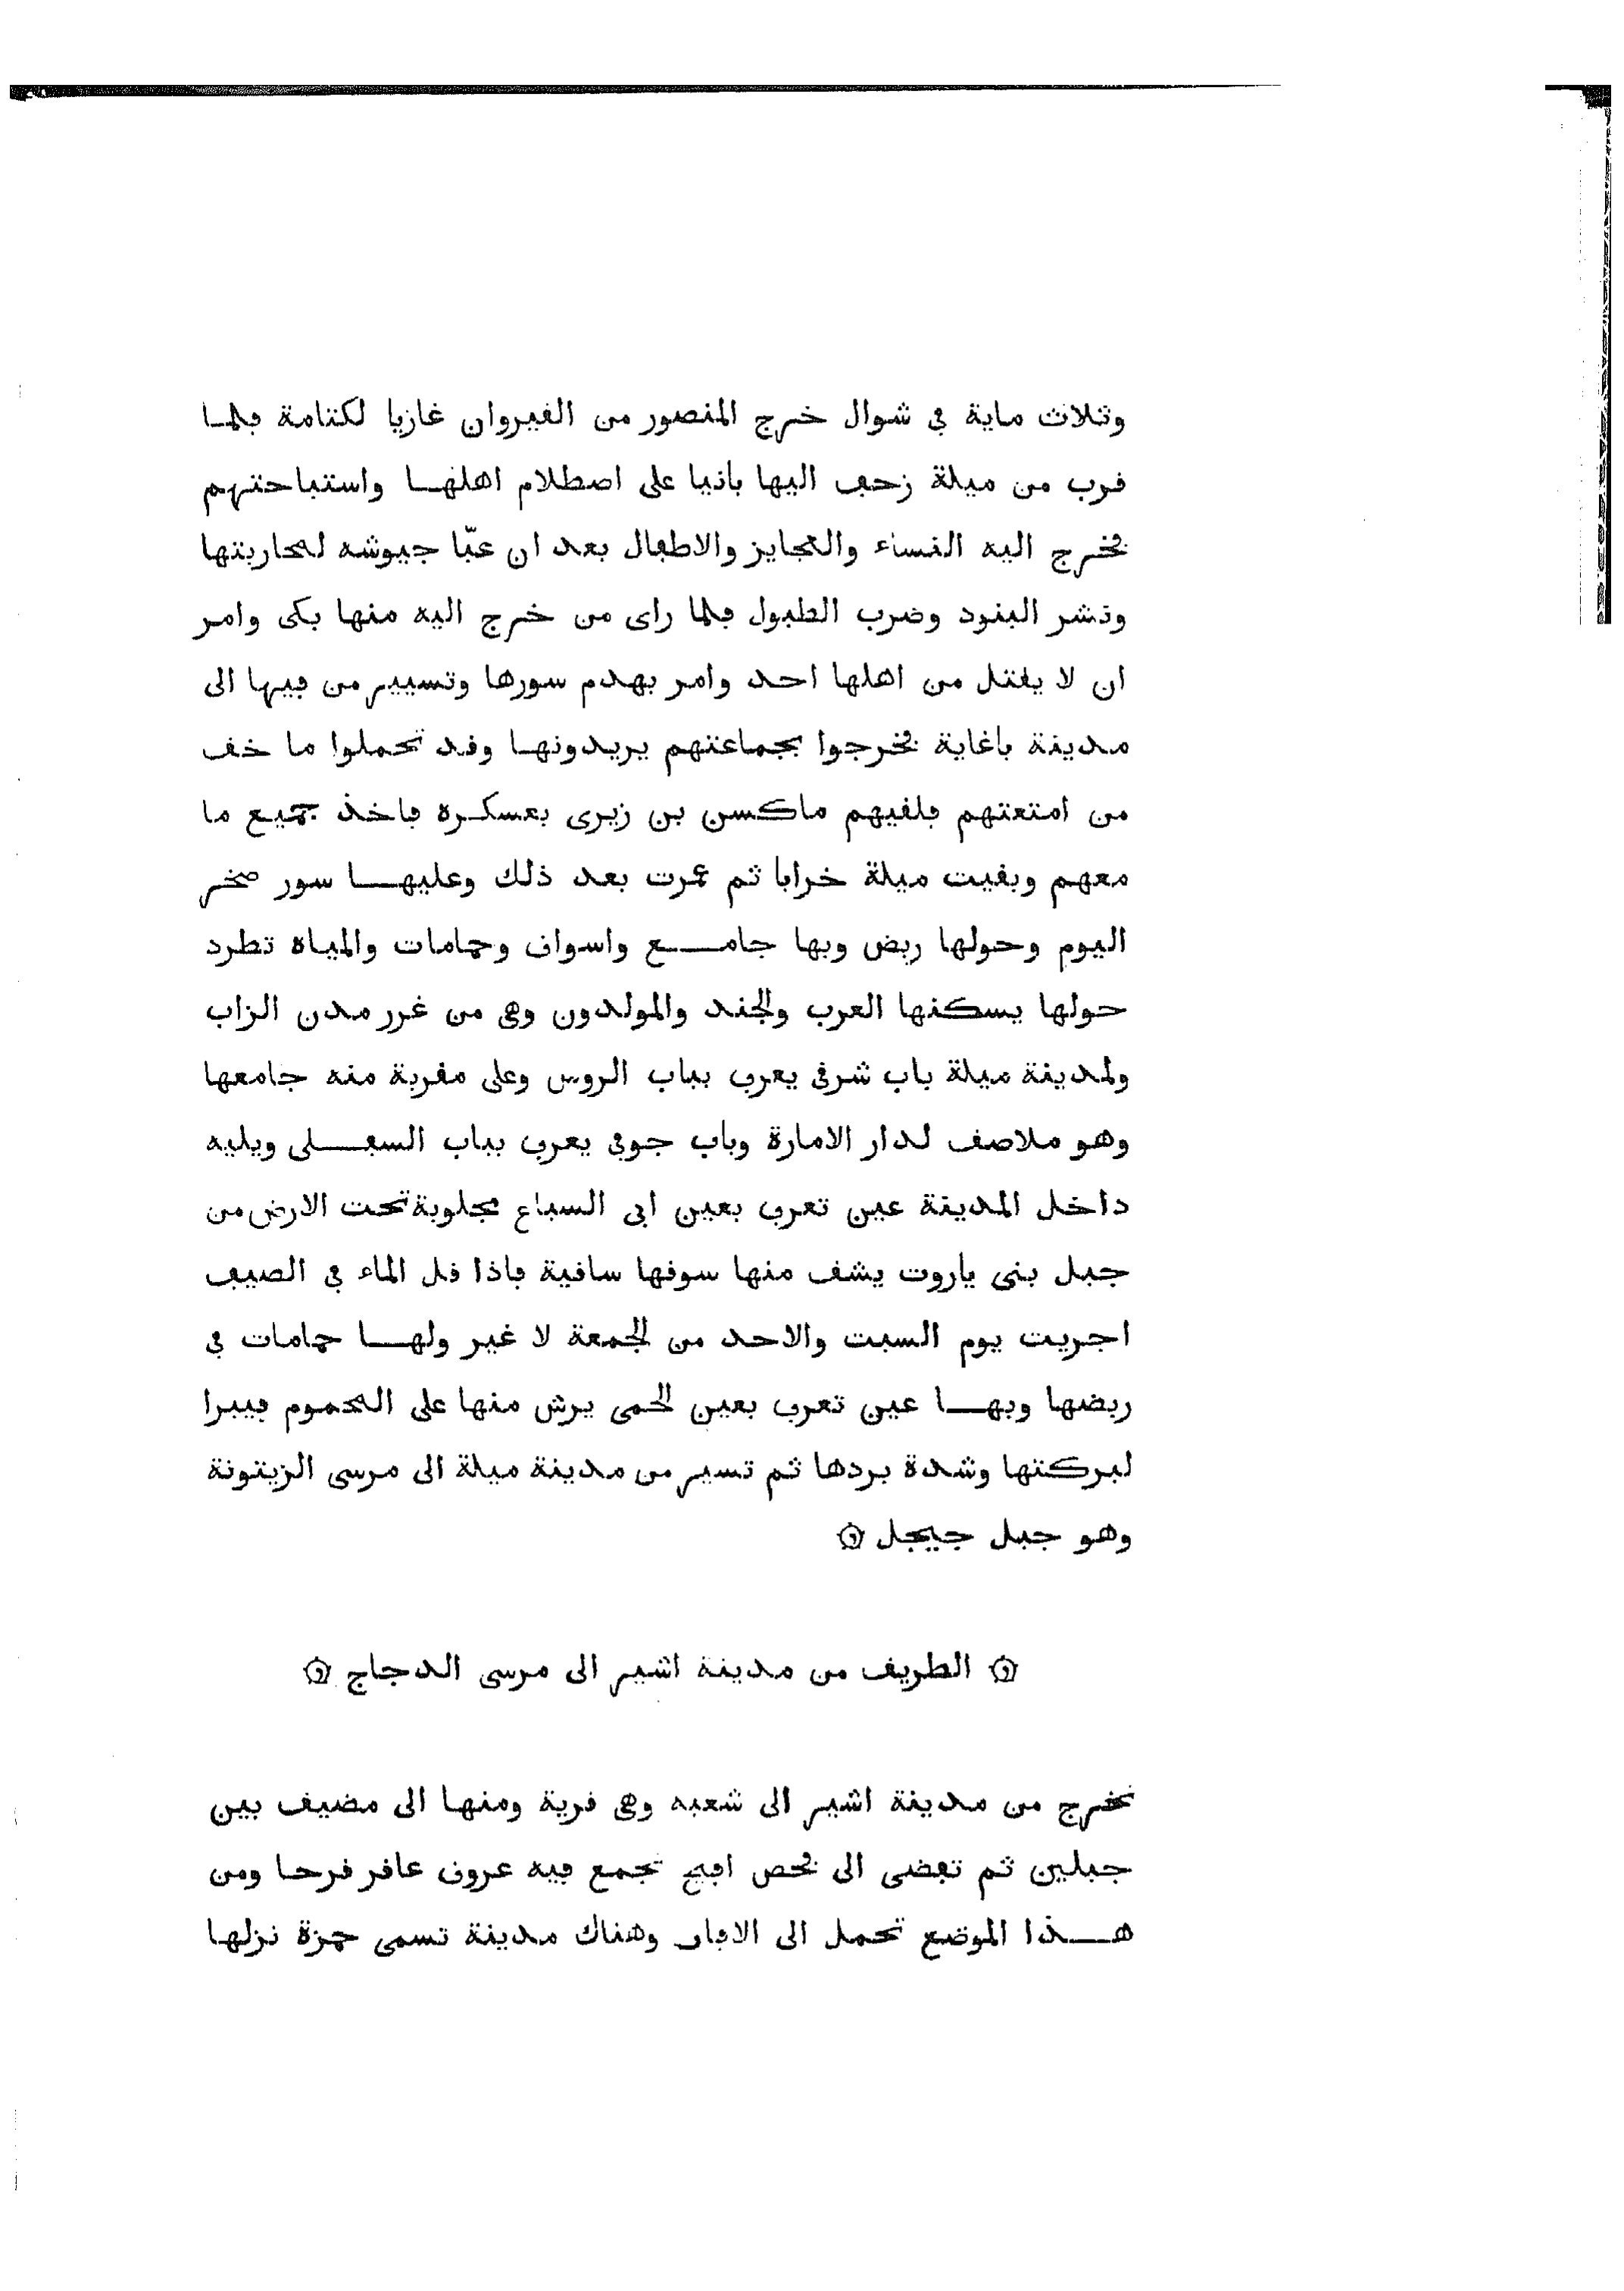 وثلاث ماية في شوال خرج المنصور من القيروان غازيا لكتامة فلما
قرب من ميلة زحف اليها بانيا على اصطلام اهلها واستباحتهم
فخرج اليه النساء والعجايز والاطفال بعد ان عبّا جيوشه لمحاربتها
ونشر البنود وضرب الطبول فلما راى من خرج اليه منها بكى وامر
ان لا يقتل من اهلها احد وامر بهدم سورها وتسيير من فيها الى
مدينة باغاية فخرجوا بجماعتهم يريدونها وقد تحملوا ما خف
من امتعتهم فلقيهم ماكسن بن زيرى بعسكره فاخذ جميع ما
معهم وبقيت ميلة خرابا ثم عمرت بعد ذلك وعليها سور صخر
اليوم وحولها ربض وبها جامع واسواق وحمامات والمياه تطرد
حولها يسكنها العرب والجند والمولدون وهى من غرر مدن الزاب
ولمدينة ميلة باب شرقى يعرف بباب الروس وعلى مقربة منه جامعها
وهو ملاصق لدار الامارة وباب جوفى يعرف بباب السفلى ويليه
داخل المدينة عين تعرف بعين ابى السباع مجلوبة تحت الارض من
جبل بنى ياروت يشق منها سوقها ساقية فاذا قل الماء في الصيف
اجريت يوم السبت والاحد من الجمعة لا غير ولها حمامات في
ربضها وبها عين تعرف بعين الحمى يرش منها على المحموم فيبرا
لبركتها وشدة بردها ثم تسير من مدينة ميلة الى مرسى الزيتونة
وهو جبل جيجل
الطريق من مدينة اشير الى مرسى الدجاج
تخرج من مدينة اشير الى شعبه وهى قرية ومنها الى مضيق بين
جبلين ثم تفضى الى فحص افيح تجمع فيه عروق عاقر قرحا ومن
هذا الموضع تحمل الى الافاق وهناك مدينة تسمى حمزة نزلها